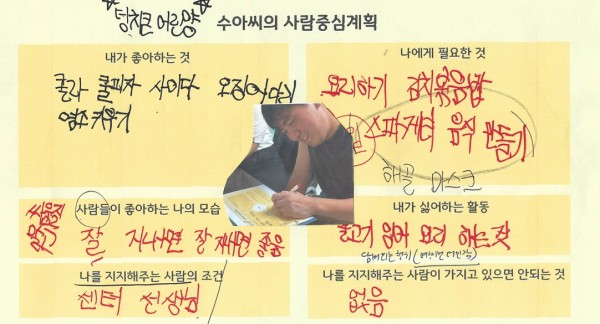 덩치큰 어린양
수아씨의 사람중심계획
내가 좋아하는 것
콜라 쿨피자 사이다 오징어다리
염소 키우기
나에게 필요한 것
요리하기 김치볶음밥
스파게티 음식 만들기
해골 마스크
사람들이 좋아하는 나의 모습
잘 지나나면 잘 지내면 좋음
내가 싫어하는 활동
물고기 잡아 요리 하는 것
나를 지지해주는 사람의 조건
센터 선생님
나를 지지해주는 사람이 가지고 있으면 안되는 것
없음